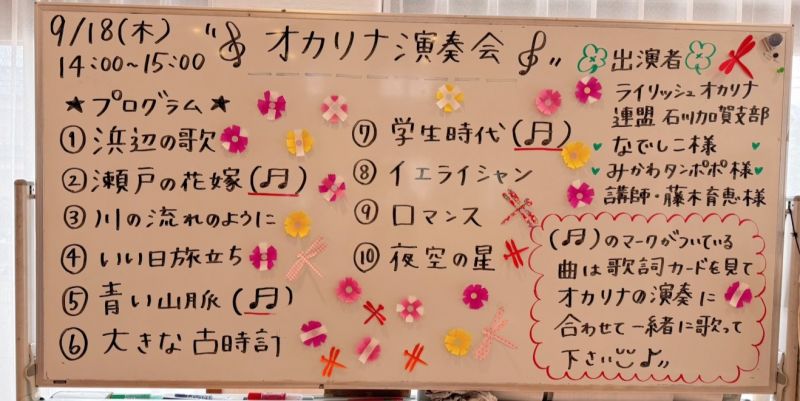 9/18(木)
14:00~15:00
"𝄞 オカリナ演奏会 𝄞"
★プログラム★
① 浜辺の歌
② 瀬戸の花嫁 (♬)
③ 川の流れのように
④ いい日旅立ち
⑤ 青い山脈 (♬)
⑥ 大きな古時計
⑦ 学生時代 (♬)
⑧ イエライシャン
⑨ ロマンス
⑩ 夜空の星
出演者
ライリッシュオカリナ
連盟 石川加賀支部
なでしこ様
みかわタンポポ様
講師・藤木育恵様
(♬)のマークがついている
曲は歌詞カードを見て
オカリナの演奏に
合わせて一緒に歌って
下さい ♪〃